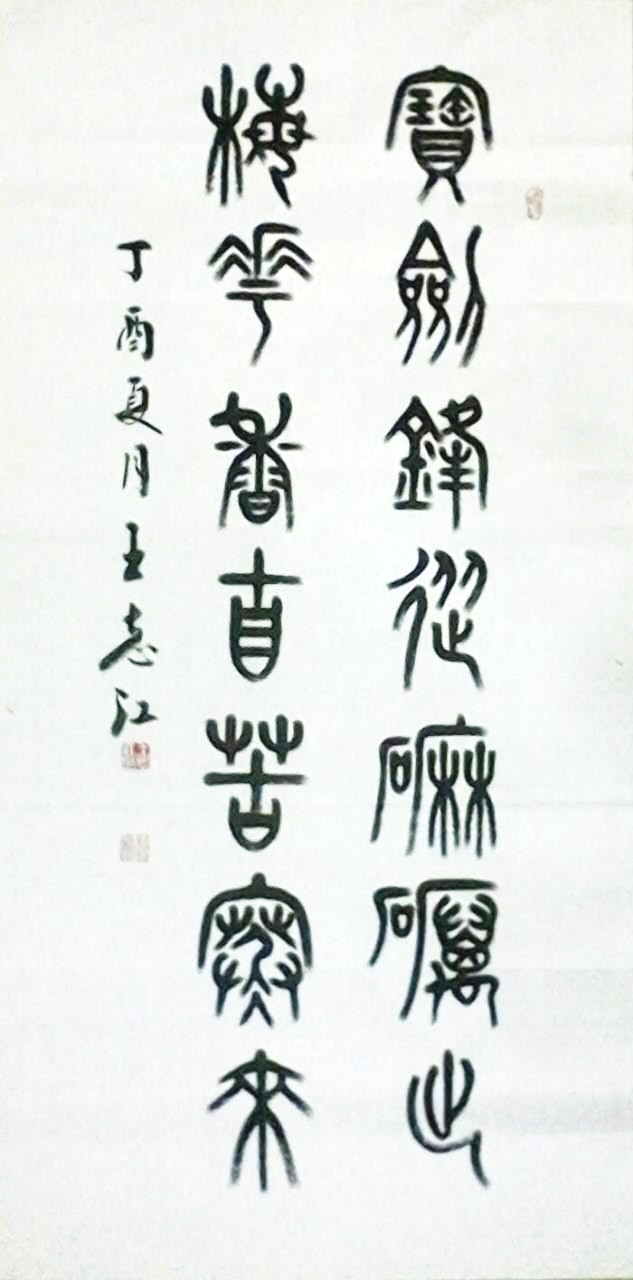 寶劍鋒從磨礪出
梅花香自苦寒來
丁酉夏月王志江